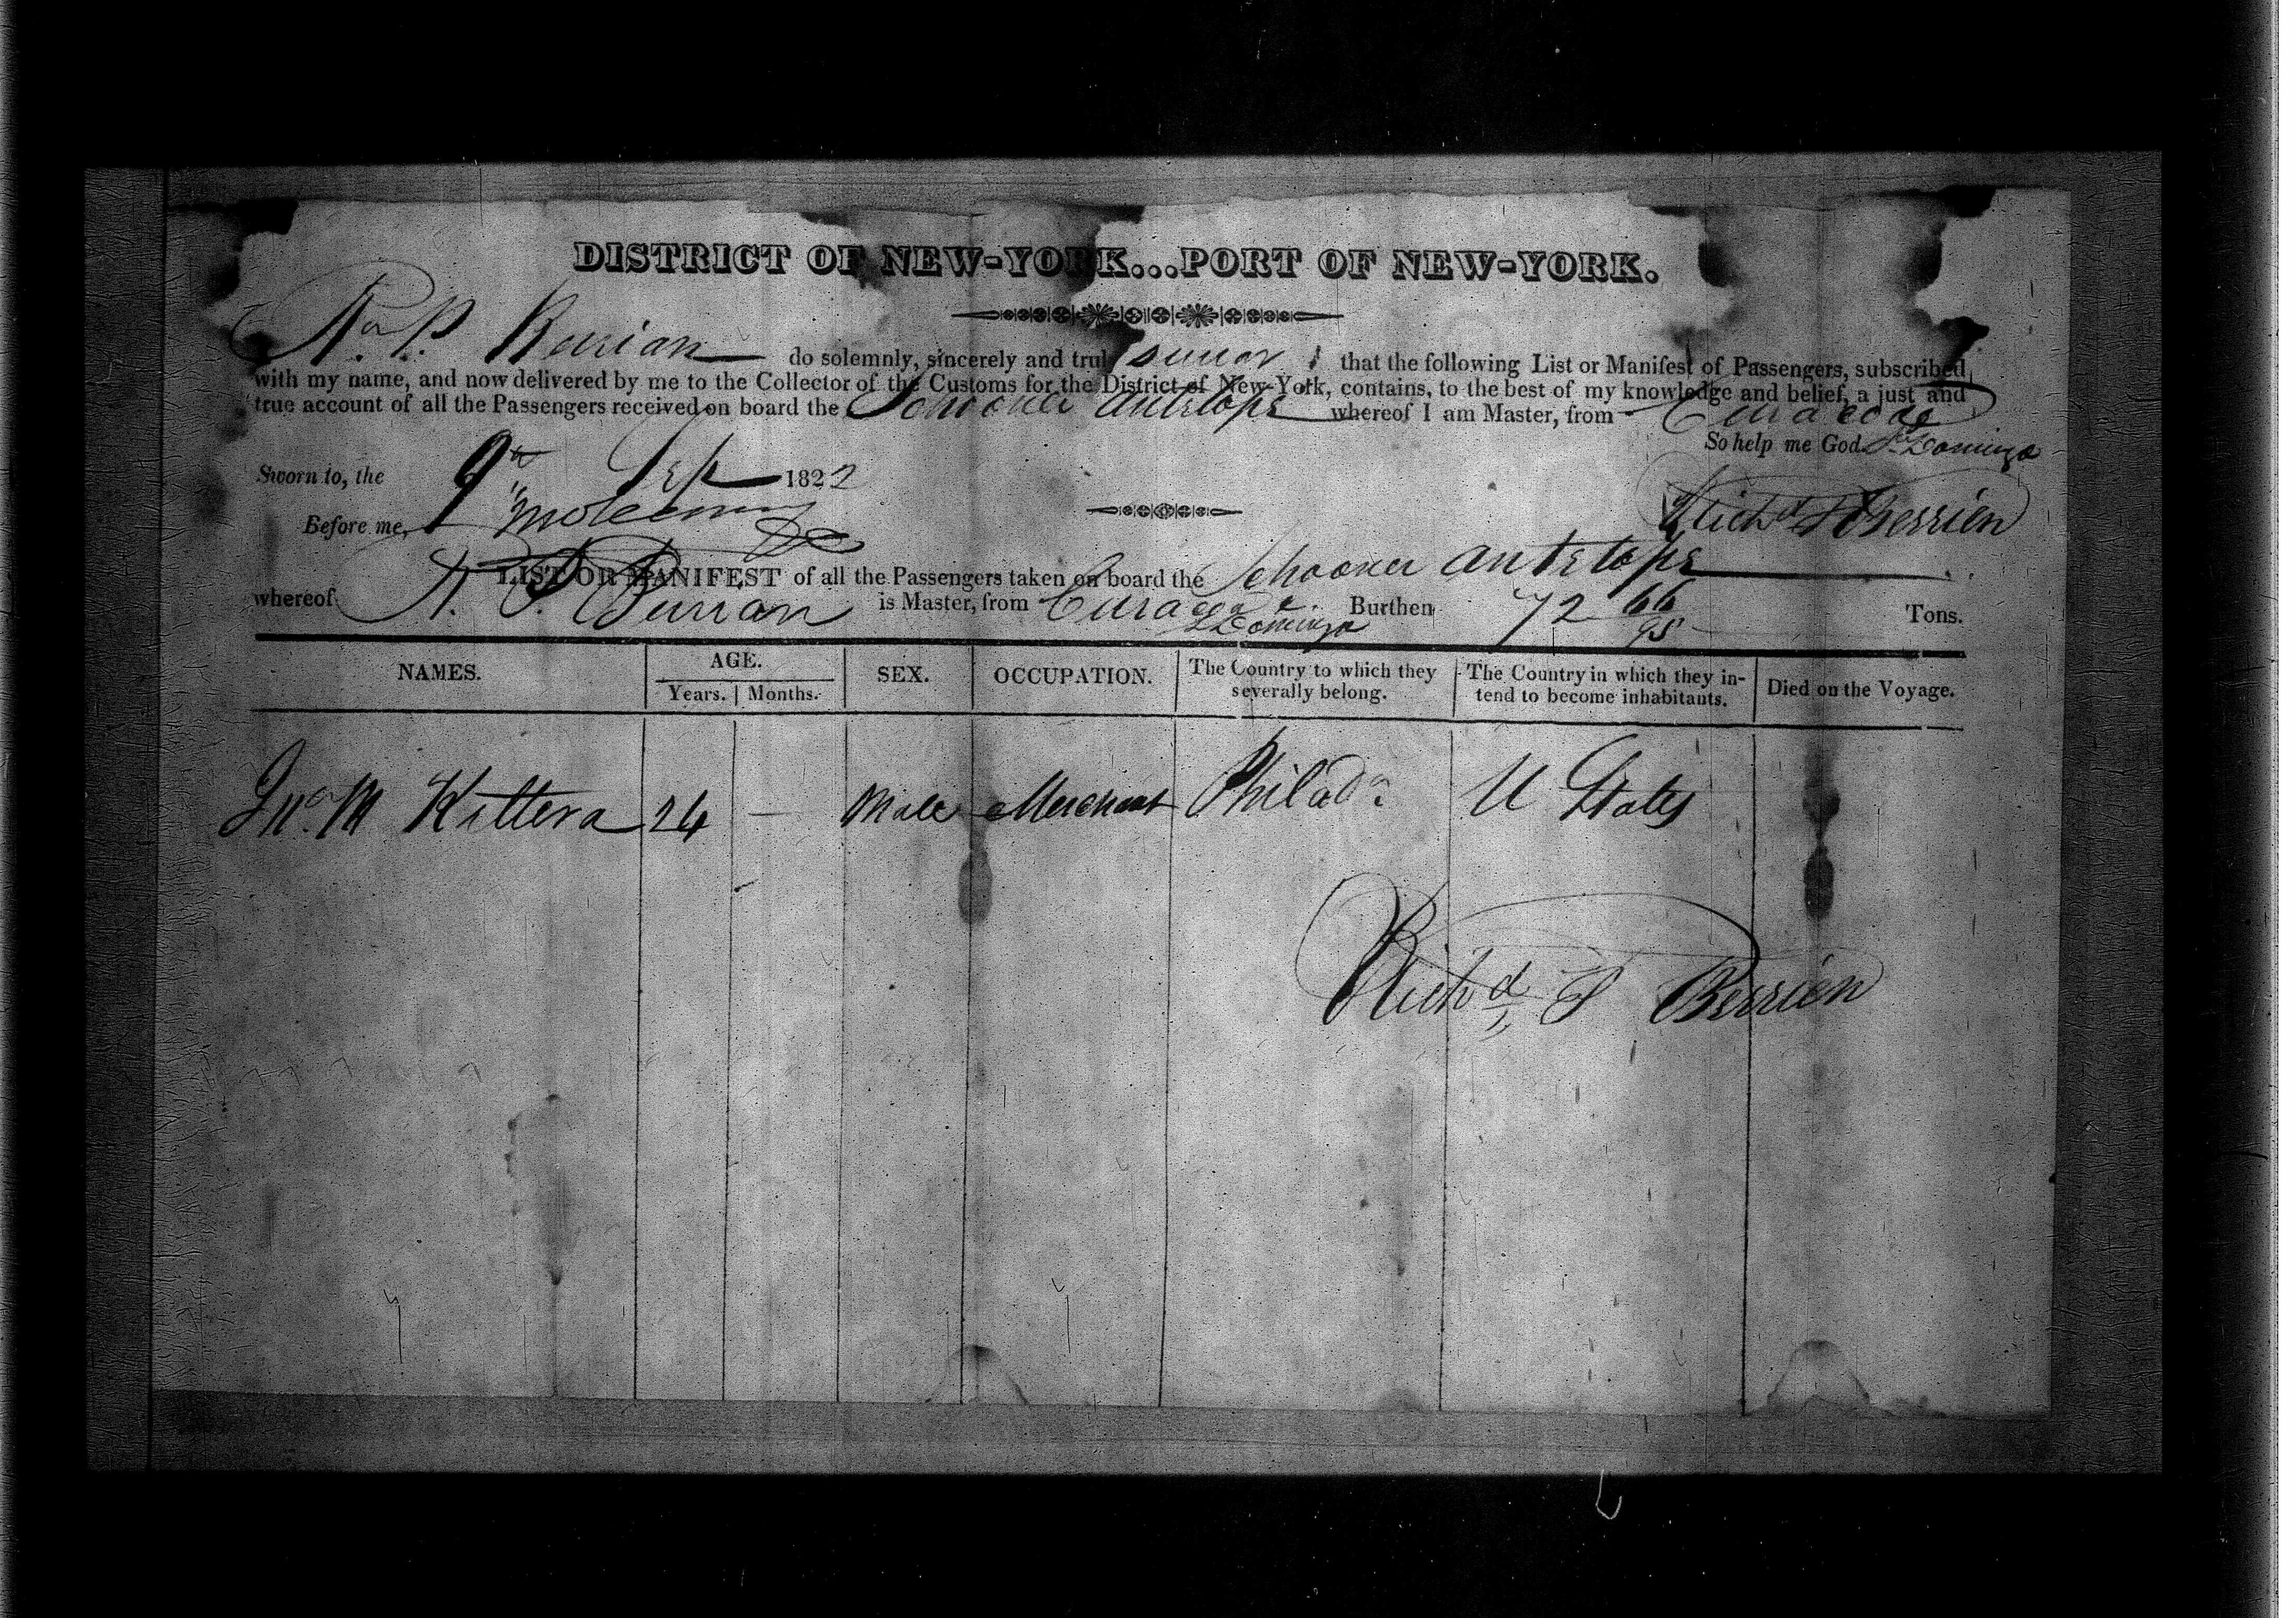 DISTRICT OF NEW-YORK...PORT OF NEW-YORK.
P. Berrian do solemnly, sincerely and truly swear that the following List or Manifest of Passengers, subscribed
with my name, and now delivered by me to the Collector of the Customs for the District of New-York, contains, to the best of my knowledge and belief, a just and
true account of all the Passengers received on board the Schooner Antelope whereof I am Master, from Curacoa
So help me God. St Domingo
Sworn to, the 9th Sep 1822
Before me, Richd P Berrien
LIST OR MANIFEST of all the Passengers taken on board the Schooner Antelope
whereof R. P. Burrian is Master, from Curacoa & St Domingo Burthen 72 66/95 Tons.
NAMES. AGE. SEX. OCCUPATION. The Country to which they severally belong. The Country in which they intend to become inhabitants. Died on the Voyage.
Years. Months.
Jno. M Kittera 24 — Male Merchant Philada. U States
Richd P Berrien